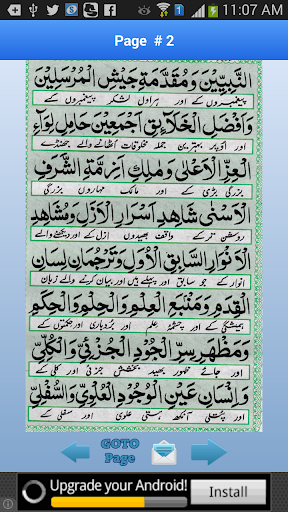 11:07 AM
Page # 2
النَّبِيِّيْنَ وَمُقَدَّمَةِ جَيْشِ الْمُرْسَلِيْنَ
پیغمبروں کے اور ہراول لشکر پیغمبروں کے
وَاَفْضَلِ الْخَلَائِقِ اَجْمَعِيْنَ حَامِلِ لِوَاءِ
اور بہترین جملہ مخلوقات اٹھانے والے جھنڈے
الْعِزِّ الْاَعْلٰى وَمَلِكِ اَزِمَّةِ الشَّرَفِ
بزرگی بڑی کے اور مالک مہاروں بزرگی
الْاَسْنٰى شَاهِدِ اَسْرَارِ الْاَزَلِ وَمُشَاهِدِ
روشن تر کے واقف بھیدوں ازل کے اور دیکھنے والے
الْاَنْوَارِ السَّابِقِ الْاَوَّلِ وَتَرْجُمَانِ لِسَانِ
انوار کے جو سابق اور پہلے ہیں اور بیان کرنے والے زبان
الْقِدَمِ وَمَنْبَعِ الْعِلْمِ وَالْحِلْمِ وَالْحِكَمِ
ہمیشگی کے اور چشمہ علم اور بردباری اور حکمتوں کے
وَمَظْهَرِ سِرِّ الْجُوْدِ الْجُزْئِيِّ وَالْكُلِّيِّ
اور جائے ظہور بھید بخشش جزئی اور کلی کے
وَاِنْسَانِ عَيْنِ الْوُجُوْدِ الْعُلْوِيِّ وَالسُّفْلِيِّ
اور پتلی آنکھ ہستی علوی اور سفلی کے
GOTO
Page
Upgrade your Android!
Install